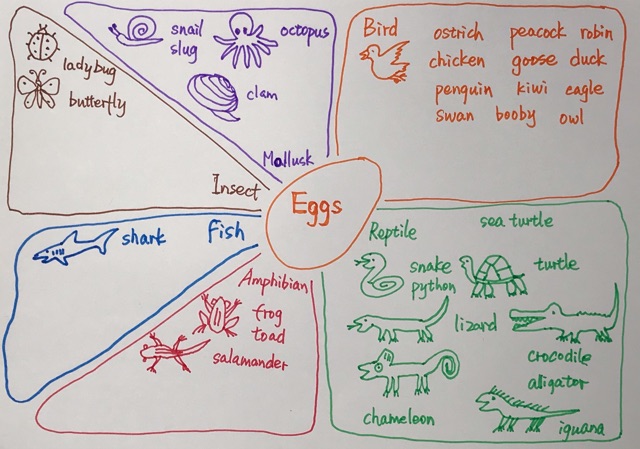 Eggs
Insect
ladybug
butterfly
Mollusk
snail
slug
octopus
clam
Bird
ostrich peacock robin
chicken goose duck
penguin kiwi eagle
swan booby owl
Fish
shark
Amphibian
frog
toad
salamander
Reptile
sea turtle
snake
python
turtle
lizard
crocodile
alligator
chameleon
iguana